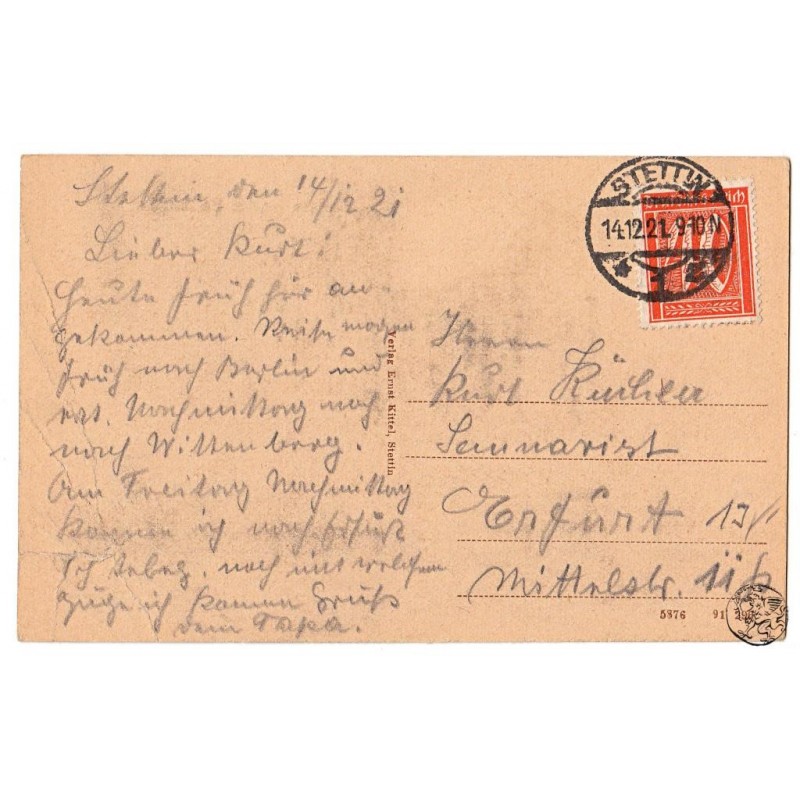 Stettin, den 14/12 21
Lieber Kurt!
Heute früh hier an-
gekommen. Reise morgen
früh nach Berlin und
Nachmittag noch
nach Wittenberg.
Am Freitag Nachmittag
komme ich nach Erfurt
Ich telegr. noch mit welchem
Zuge ich komme Gruß
dein Papa.
Verlag Ernst Kittel, Stettin
STETTIN
14.12.21. 9-10 N
* 1
40
Herrn
Kurt Küchler
Seminarist
Erfurt
Mittelstr. 11
5876 91